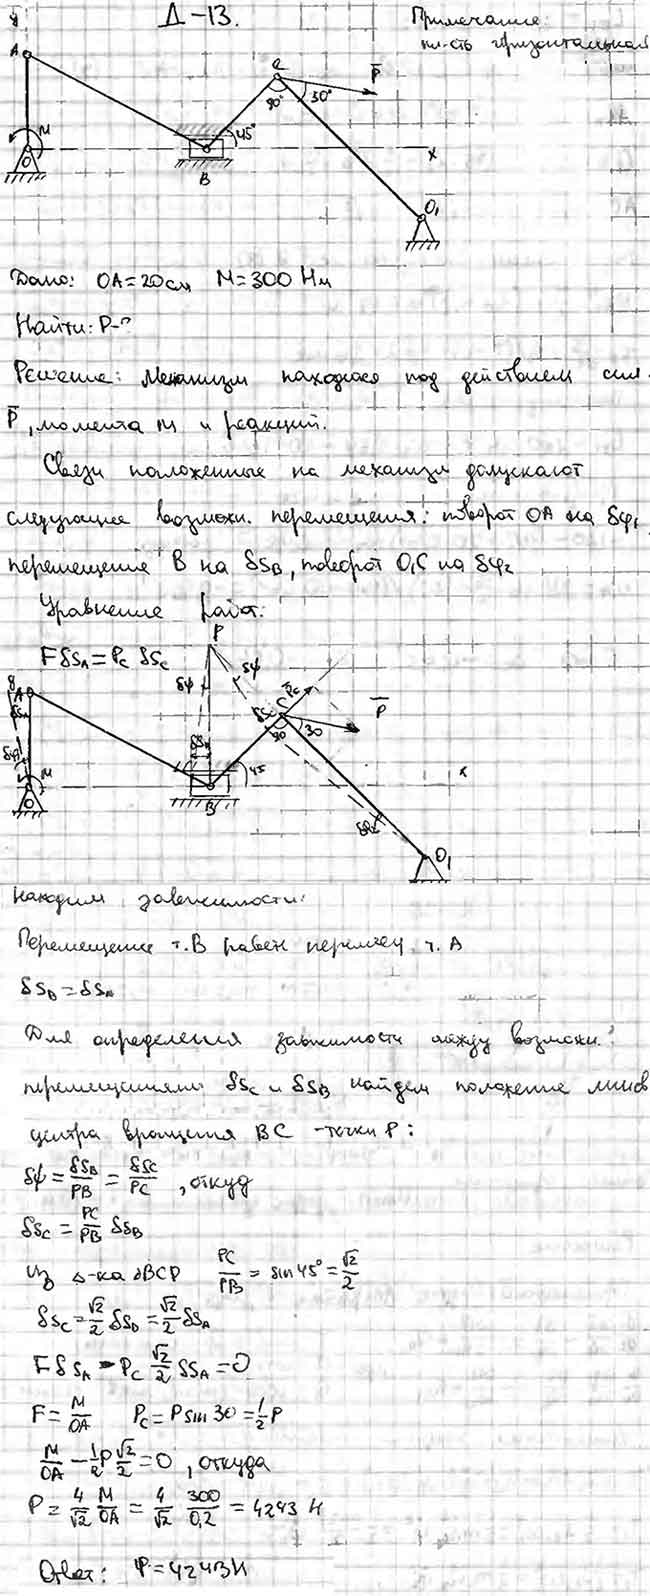 Д-13.
Примечание:
пл-сть горизонтальная
y
A
C
P
90° 30°
M
45°
O
B
x
O₁
Дано: OA=20см M=300 Нм
Найти: P-?
Решение: Механизм находится под действием сил
P, момента M и реакций.
Связи наложенные на механизм допускают
следующие возможн. перемещения: поворот OA на δφ₁
перемещение B на δS_B, поворот O₁C на δφ₂
Уравнение работ:
FδS_A = P_C δS_C
P
δψ
δψ
y
A
δS_A
δS_C
C
P_C
P
90
30
δφ₁
M
45
x
O
B
δφ₂
O₁
Находим зависимости:
Перемещение т.B равен перемещ. т. A
δS_B = δS_A
Для определения зависимости между возможн.
перемещениями δS_C и δS_B найдем положение мгнов
центра вращения BC - точки P:
δψ = δS_B/PB = δS_C/PC , откуд
δS_C = PC/PB δS_B
Из Δ-ка BCP PC/PB = sin45° = √2/2
δS_C = √2/2 δS_B = √2/2 δS_A
FδS_A - P_C √2/2 δS_A = 0
F = M/OA P_C = P sin 30 = 1/2 P
M/OA - 1/2 P √2/2 = 0 , откуда
P = 4/√2 M/OA = 4/√2 300/0,2 = 4243 Н
Ответ: P = 4243Н